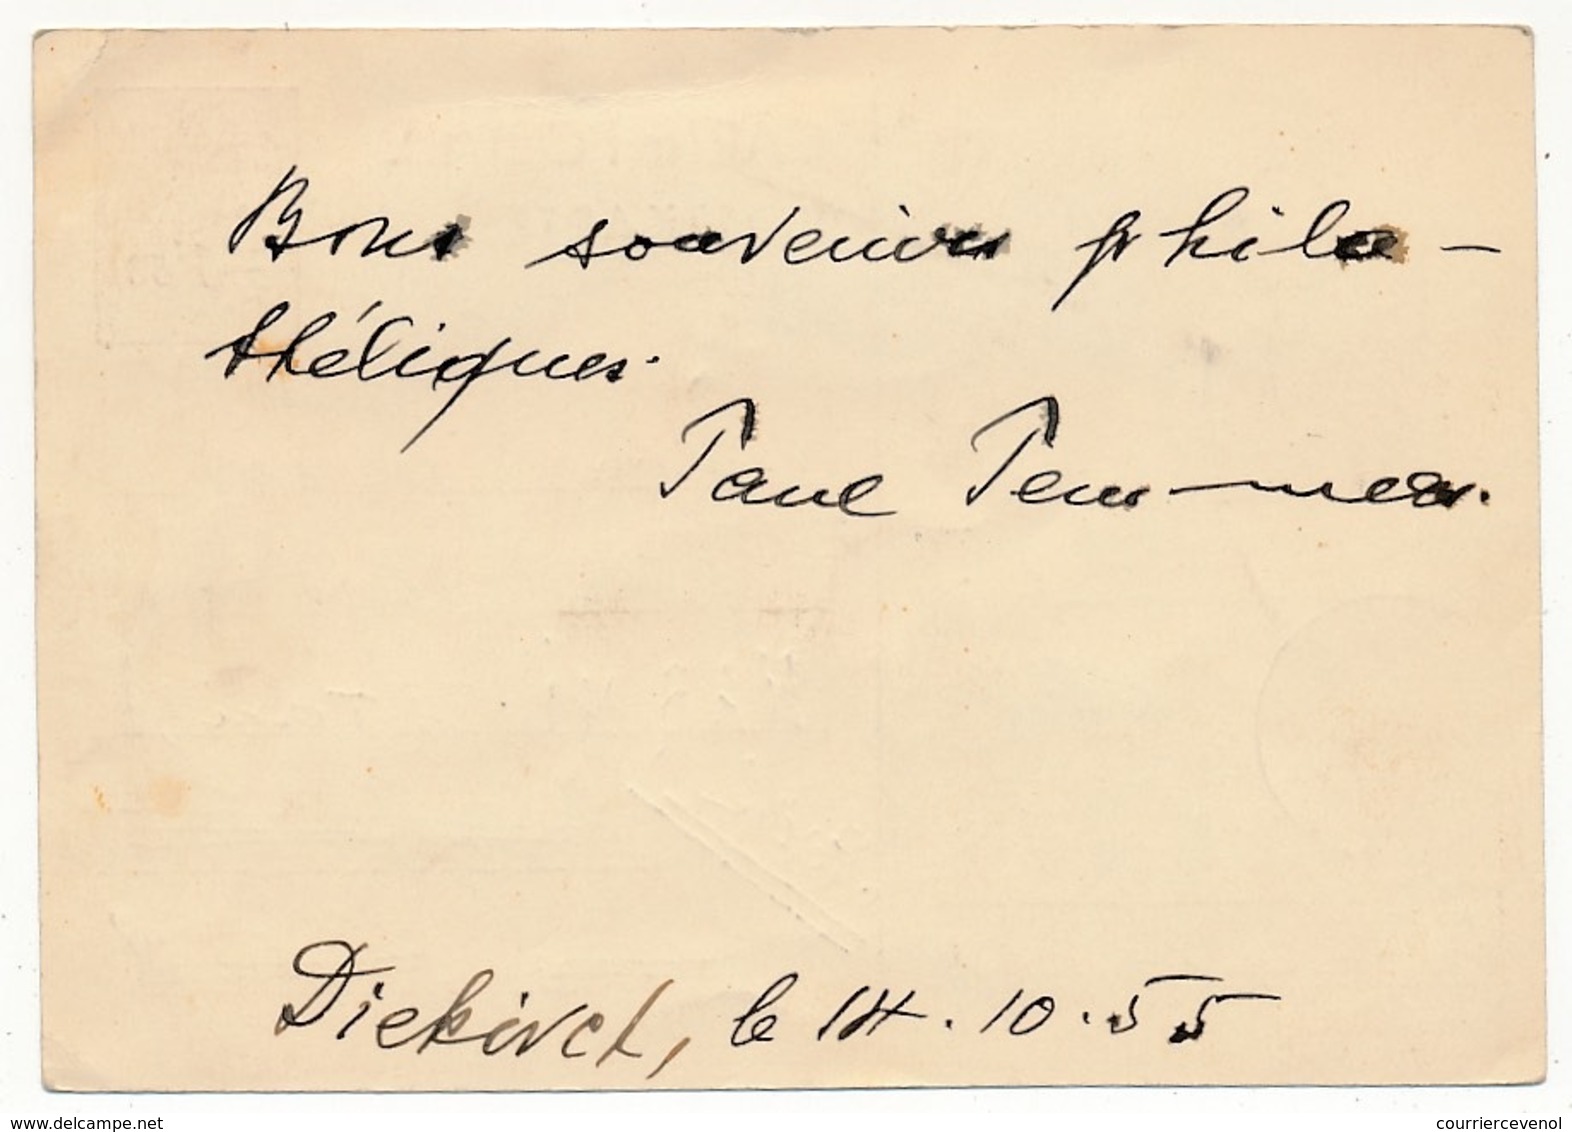 Bons souvenirs phila-
théliques.
Paul
Diekirch, le 14.10.55
www.delcampe.net
courriercevenol